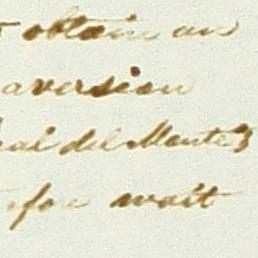 obtain an
aversion
al del Monte
efore wait